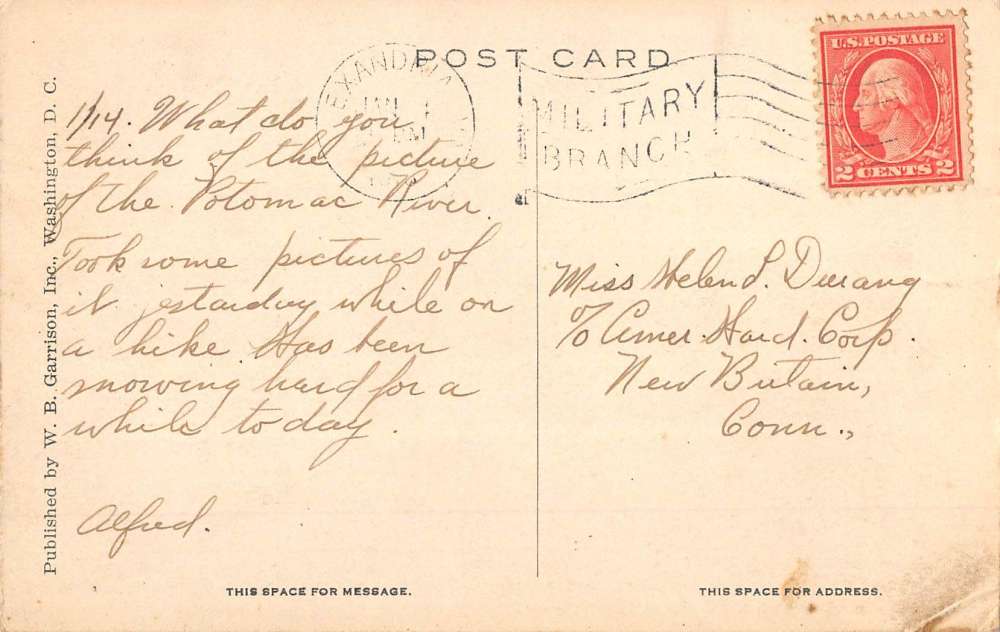 POST CARD
EXANDRIA
JAN
MILITARY
BRANCH
U.S. POSTAGE
2 CENTS 2
Published by W. B. Garrison, Inc., Washington, D. C.
1/14. What do you
think of the picture
of the Potomac River.
Took some pictures of
it yestarday while on
a hike. Has been
snowing hard for a
while today.
Alfred.
Miss Helen L. Durang
c/o Amer. Hard. Corp.
New Britain,
Conn.,
THIS SPACE FOR MESSAGE.
THIS SPACE FOR ADDRESS.